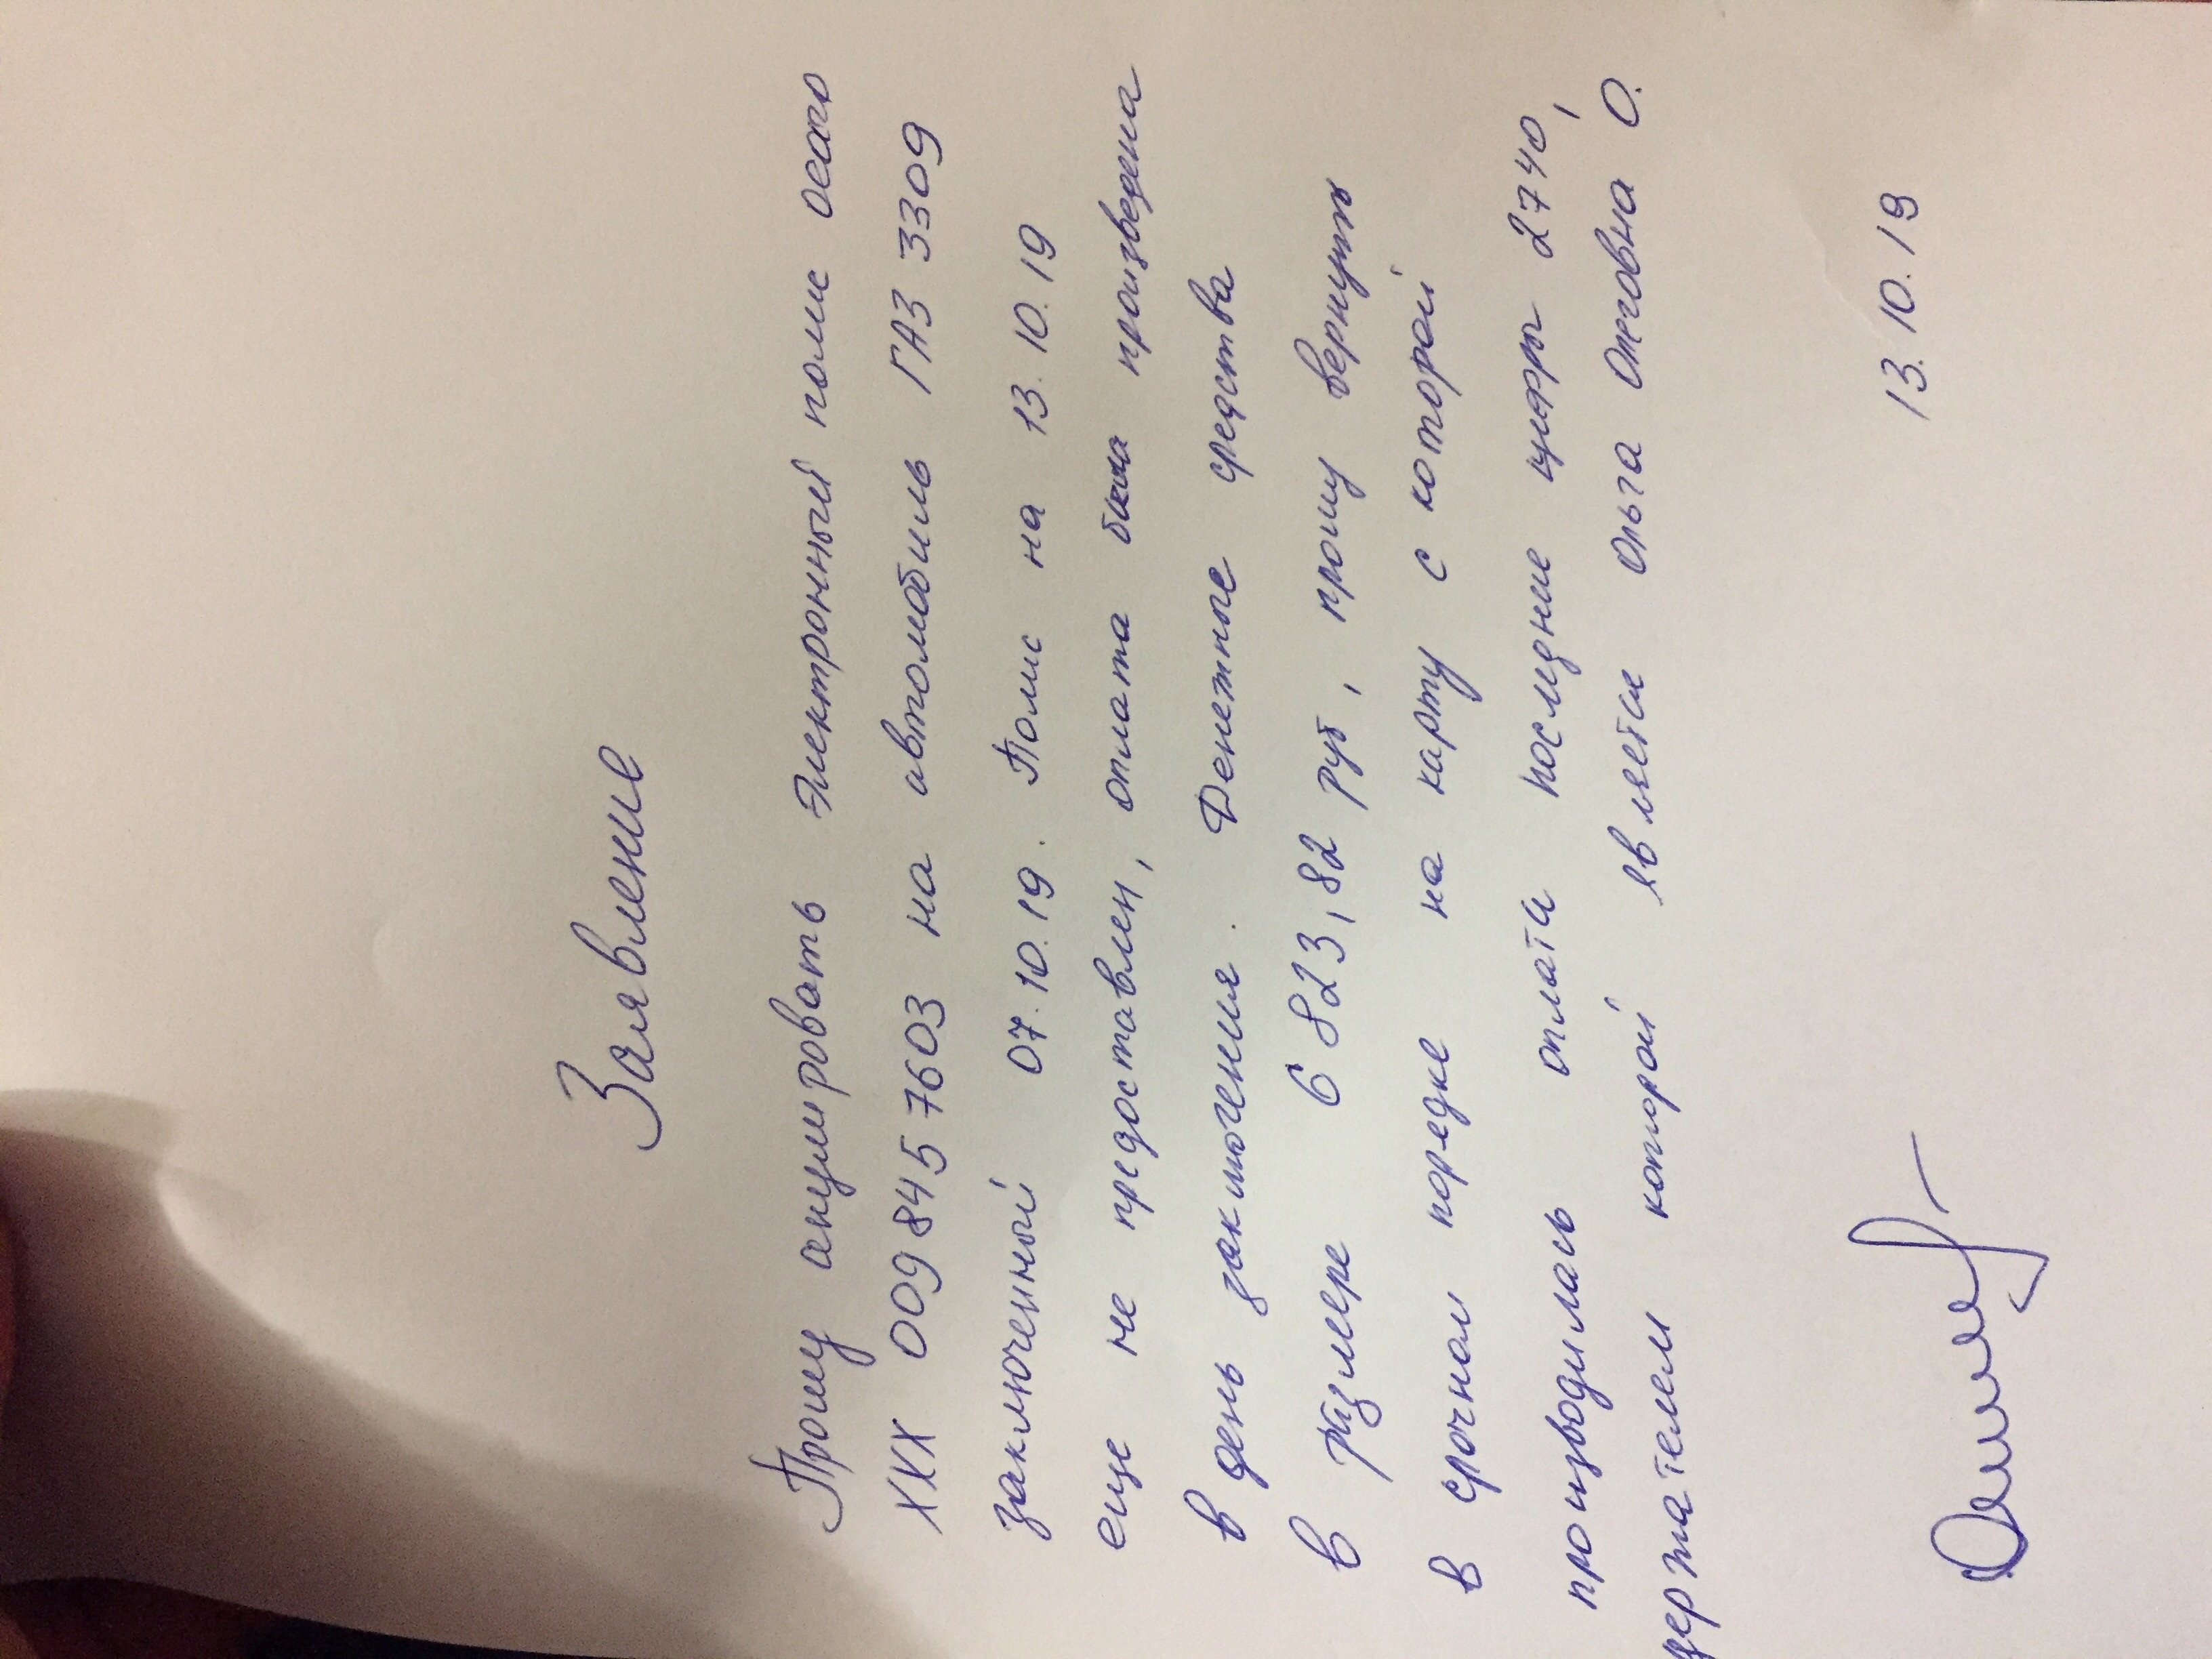 Заявление
Прошу анулировать электронный полис осаго
XXX 0098457603 на автомобиль ГАЗ 3309
заключенный 07.10.19. Полис на 13.10.19
еще не предоставлен, оплата была произведена
в день заключения. Денежные средства
в размере 6 823,82 руб, прошу вернуть
в срочном поредке на карту с которой
производилась оплата последние цифры 2740,
держателем которой является Ольга Олеговна О.
13.10.19